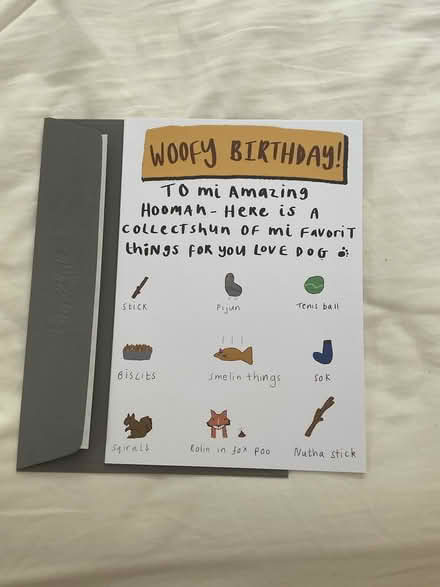 WOOFY BIRTHDAY!
TO mi AmAzing
HOOMAN - HeRe is A
COLLECTSHUN OF mi FAVORIT
tHiNGS FOR YOU LOVE DOG
Stick
Pijun
Tenis ball
Biscits
Smelin things
Sok
Sqiralls
Rolin in fox poo
Nutha stick